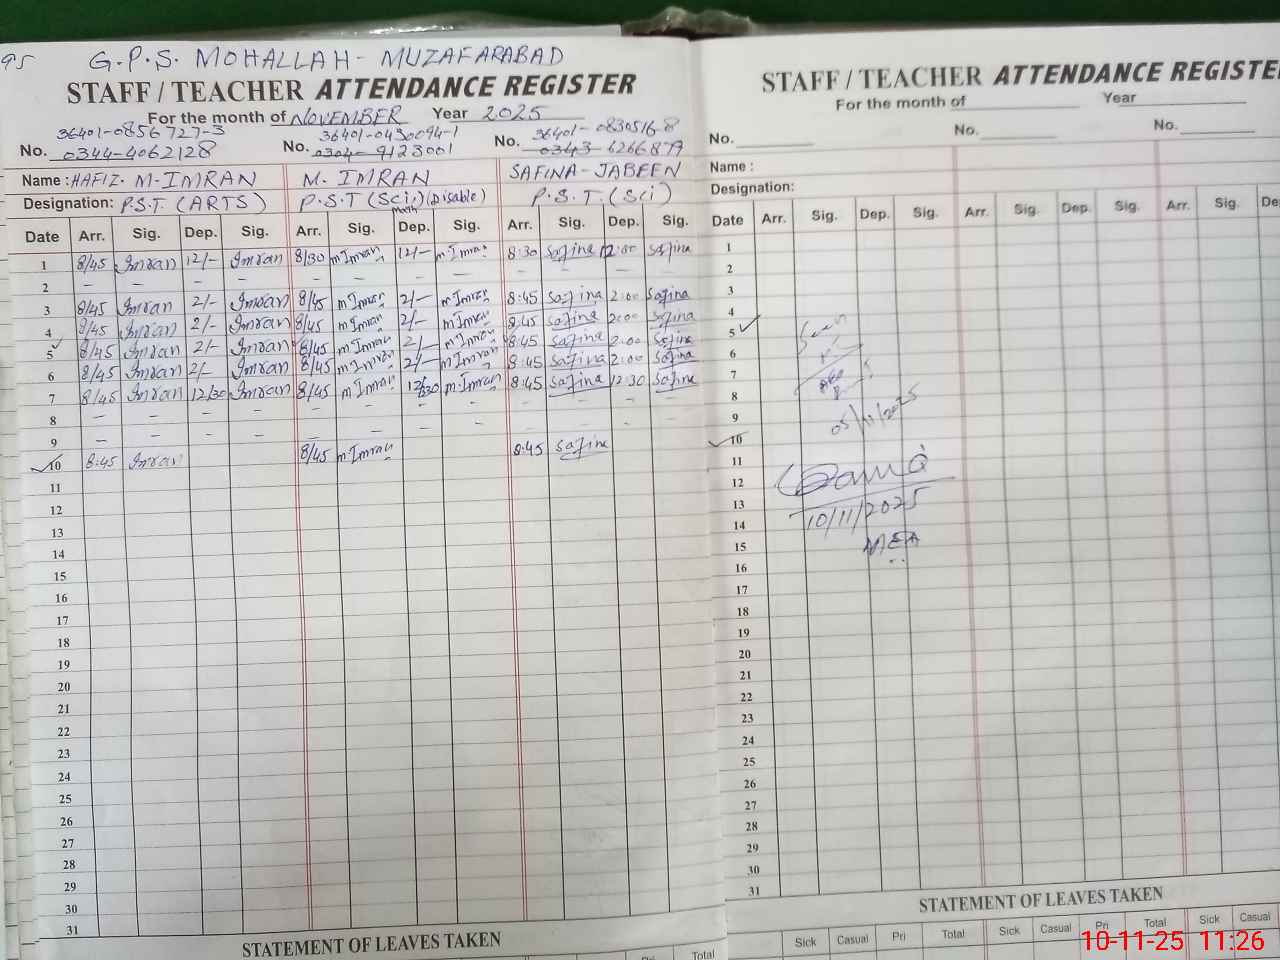 95 G.P.S. MOHALLAH - MUZAFARABAD
STAFF / TEACHER ATTENDANCE REGISTER
For the month of NOVEMBER Year 2025
36401-0856727-3 36401-0430094-1 36401-0830516-8
No. 0344-4062128 No. 0304-9123001 No. 0343-6266879
Name : HAFIZ. M-IMRAN M. IMRAN SAFINA-JABEEN
Designation: P.S.T. (ARTS) P.S.T (Sci,) (Disable) P.S.T. (Sci)
math
Date Arr. Sig. Dep. Sig. Arr. Sig. Dep. Sig. Arr. Sig. Dep. Sig.
1 8/45 Imran 12/- Imran 8/30 m Imran 12/- m Imran 8:30 Safina 12:00 Safina
2 - - - - - - - - - - - -
3 8/45 Imran 2/- Imran 8/45 m Imran 2/- m Imran 8:45 Safina 2:00 Safina
4 8/45 Imran 2/- Imran 8/45 m Imran 2/- m Imran 8:45 Safina 2:00 Safina
5 8/45 Imran 2/- Imran 8/45 m Imran 2/- m Imran 8:45 Safina 2:00 Safina
6 8/45 Imran 2/- Imran 8/45 m Imran 2/- m Imran 8:45 Safina 2:00 Safina
7 8/45 Imran 12/30 Imran 8/45 m Imran 12/30 m. Imran 8:45 Safina 12:30 Safina
8 - - - - - - - - - - - -
9 - - - - - - - - - - - -
10 8:45 Imran 8/45 m Imran 8:45 Safina
11
12
13
14
15
16
17
18
19
20
21
22
23
24
25
26
27
28
29
30
31
STATEMENT OF LEAVES TAKEN
Pri Total
STAFF / TEACHER ATTENDANCE REGISTE
For the month of Year
No. No. No.
Name :
Designation:
Date Arr. Sig. Dep. Sig. Arr. Sig. Dep. Sig. Arr. Sig. De
1
2
3
4
5
6
7
8
9 05/11/2025
10
11
12
13 10/11/2025
14
15 MEA
16
17
18
19
20
21
22
23
24
25
26
27
28
29
30
31
STATEMENT OF LEAVES TAKEN
Sick Casual Pri Total Sick Casual Pri Total Sick Casual
10-11-25 11:26